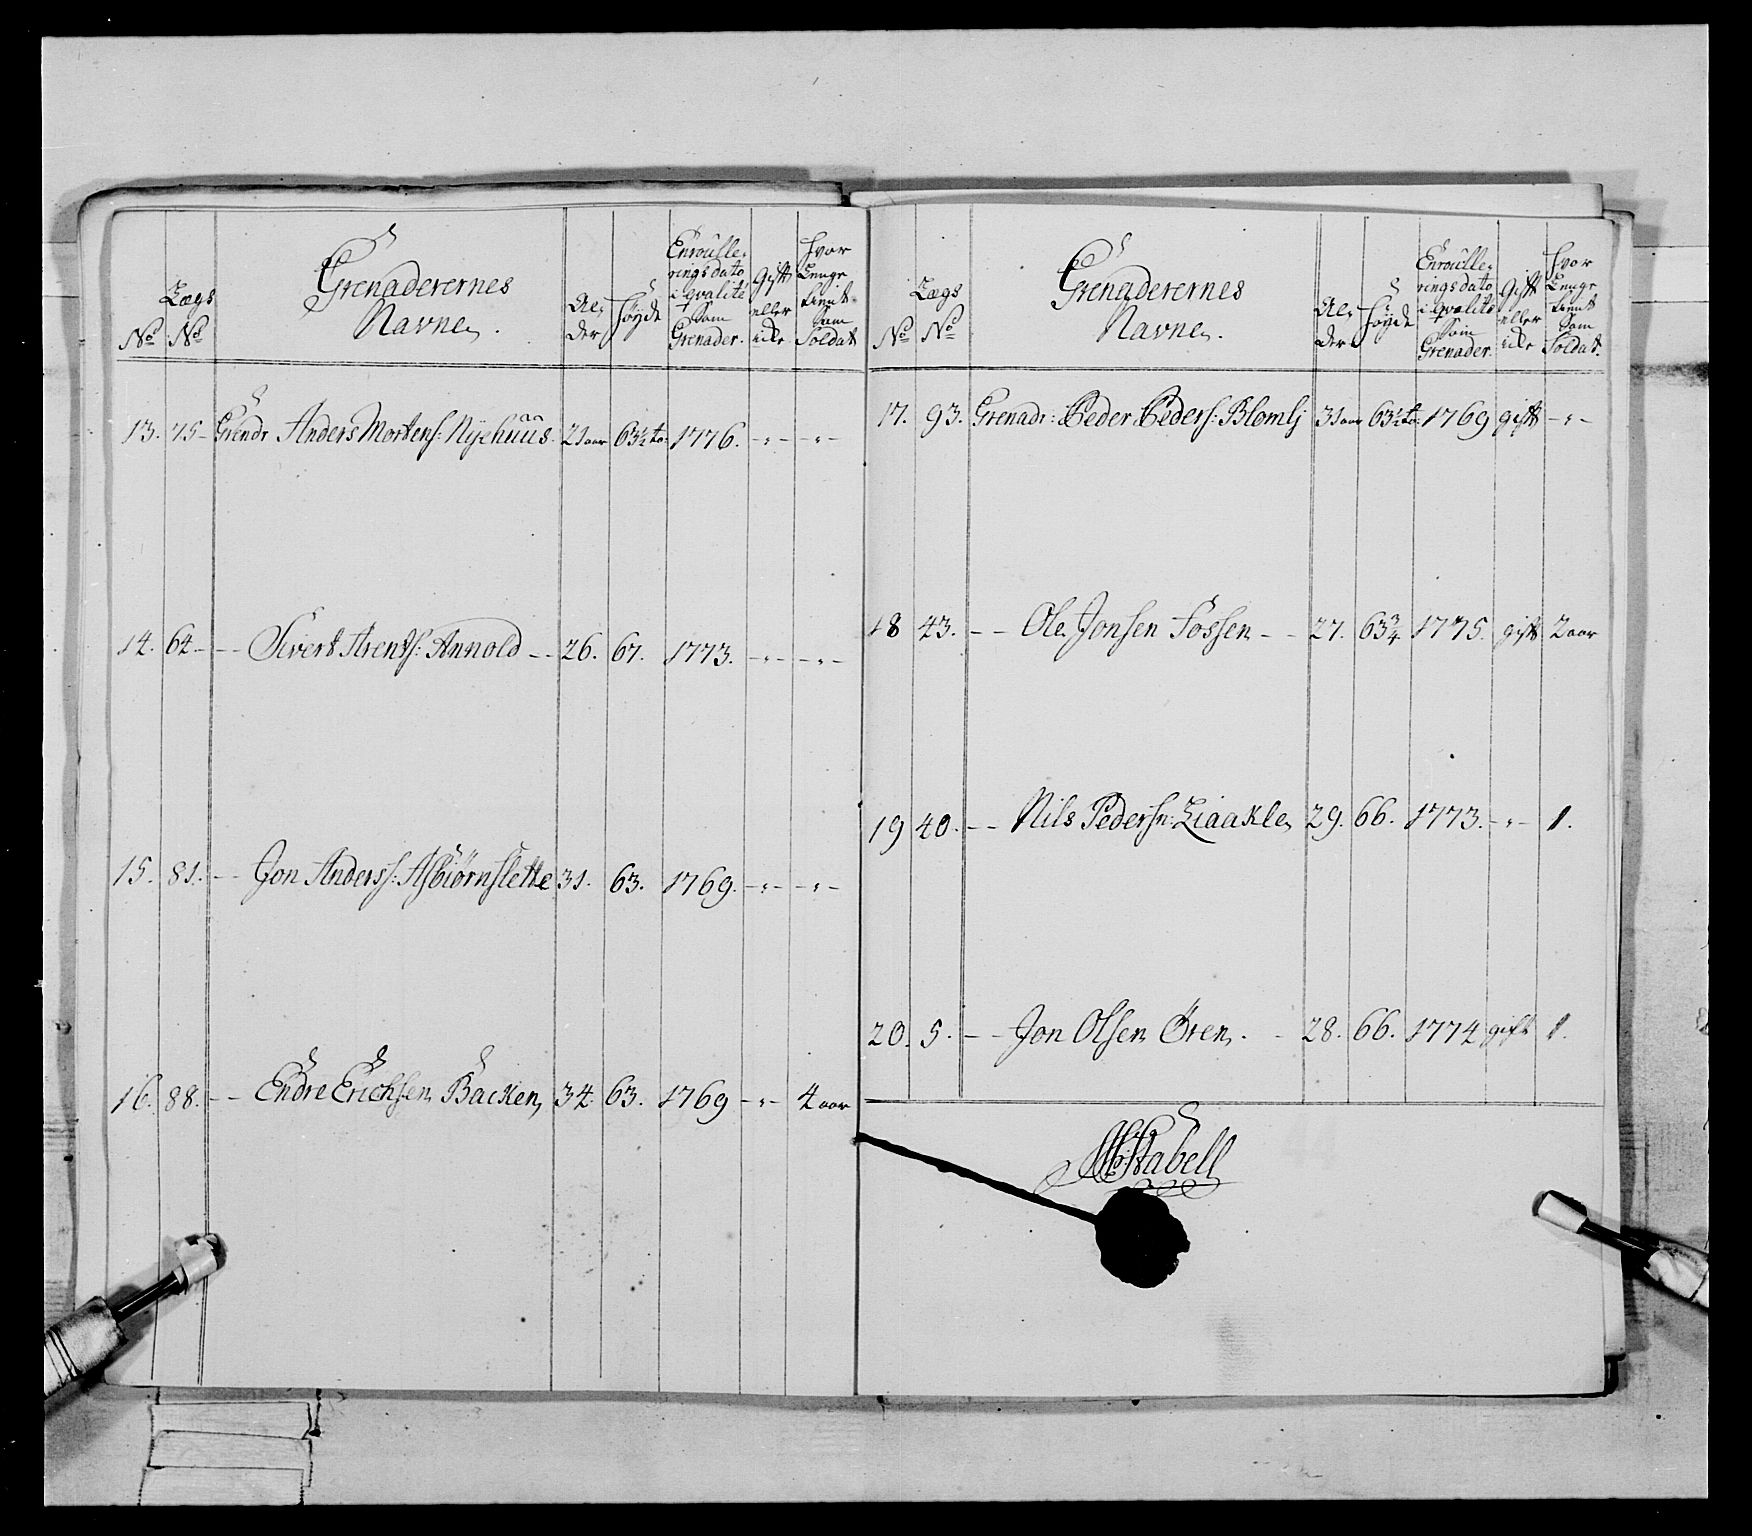 No
Lægs No
Grenaderernes Navne.
Alder
Høyde
Enroulleringsdato i qvalité som Grenader.
Gift eller icke
Hvor Lenge tient som Soldat
13. 75 - Grendr Anders Mortens: Nyehuus. 21 aar 63½ to: 1776. -"- -"-
14. 64 - - Sivert Arents: Annold - - 26. 67. 1773. -"- -"-
15. 81. - - Jon Anderss: Asbiørnslette 31. 63. 1769. -"- -"-
16. 88. - - Endre Erichsen Backen 34. 63. 1769 -"- 4 aar
No
Lægs No
Grenaderernes Navne.
Alder
Høyde
Enroulleringsdato i qvalité som Grenader.
Gift eller icke
Hvor Lenge tient som Soldat.
17. 93. Grenadr: Peder Peders: Blomlj 31 aar 63½ to: 1769 gift -"-
18 43. - - Ole Jonsen Fossen - - 27. 63¾ 1775. gift 2 aar
19 40. - - Nils Pedersn: Liaakle 29. 66. 1773. -"- 1.
20. 5. - - Jon Olsen Ören. - 28. 66. 1774 gift 1.
Stabell